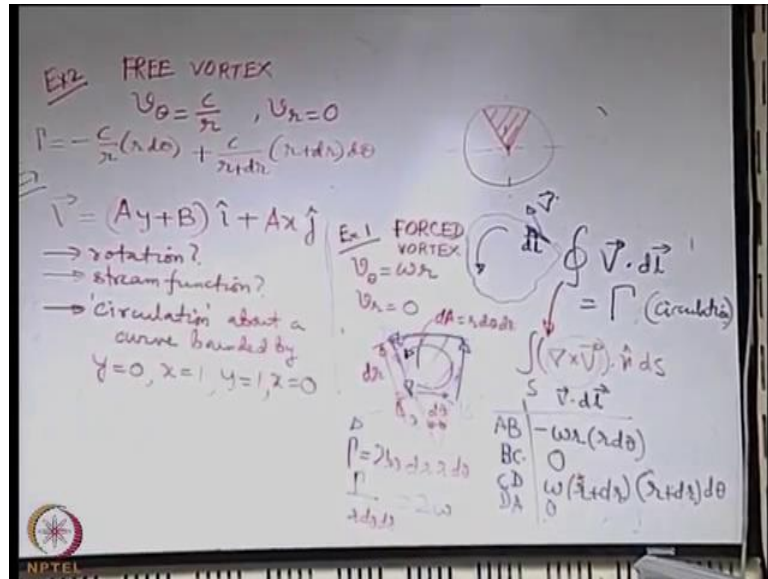 Ex2 FREE VORTEX
v_θ = c/r , v_r = 0
Γ = -c/r (r dθ) + c/(r+dr) (r+dr) dθ
V⃗ = (Ay+B) î + Ax ĵ
→ rotation?
→ stream function?
→ 'circulation' about a
curve bounded by
y=0, x=1, y=1, x=0
Ex1 FORCED
VORTEX
v_θ = ωr
v_r = 0
dA = r dθ dr
dr
dθ
V⃗
dl
∮ V⃗ · dl⃗
= Γ (Circulation)
∫_S (∇×V⃗) · n̂ ds
V⃗ · dl⃗
AB -ωr (r dθ)
BC 0
CD ω(r+dr) (r+dr) dθ
DA 0
Γ = 2ω dr r dθ
Γ/(r dθ dr) = 2ω
NPTEL